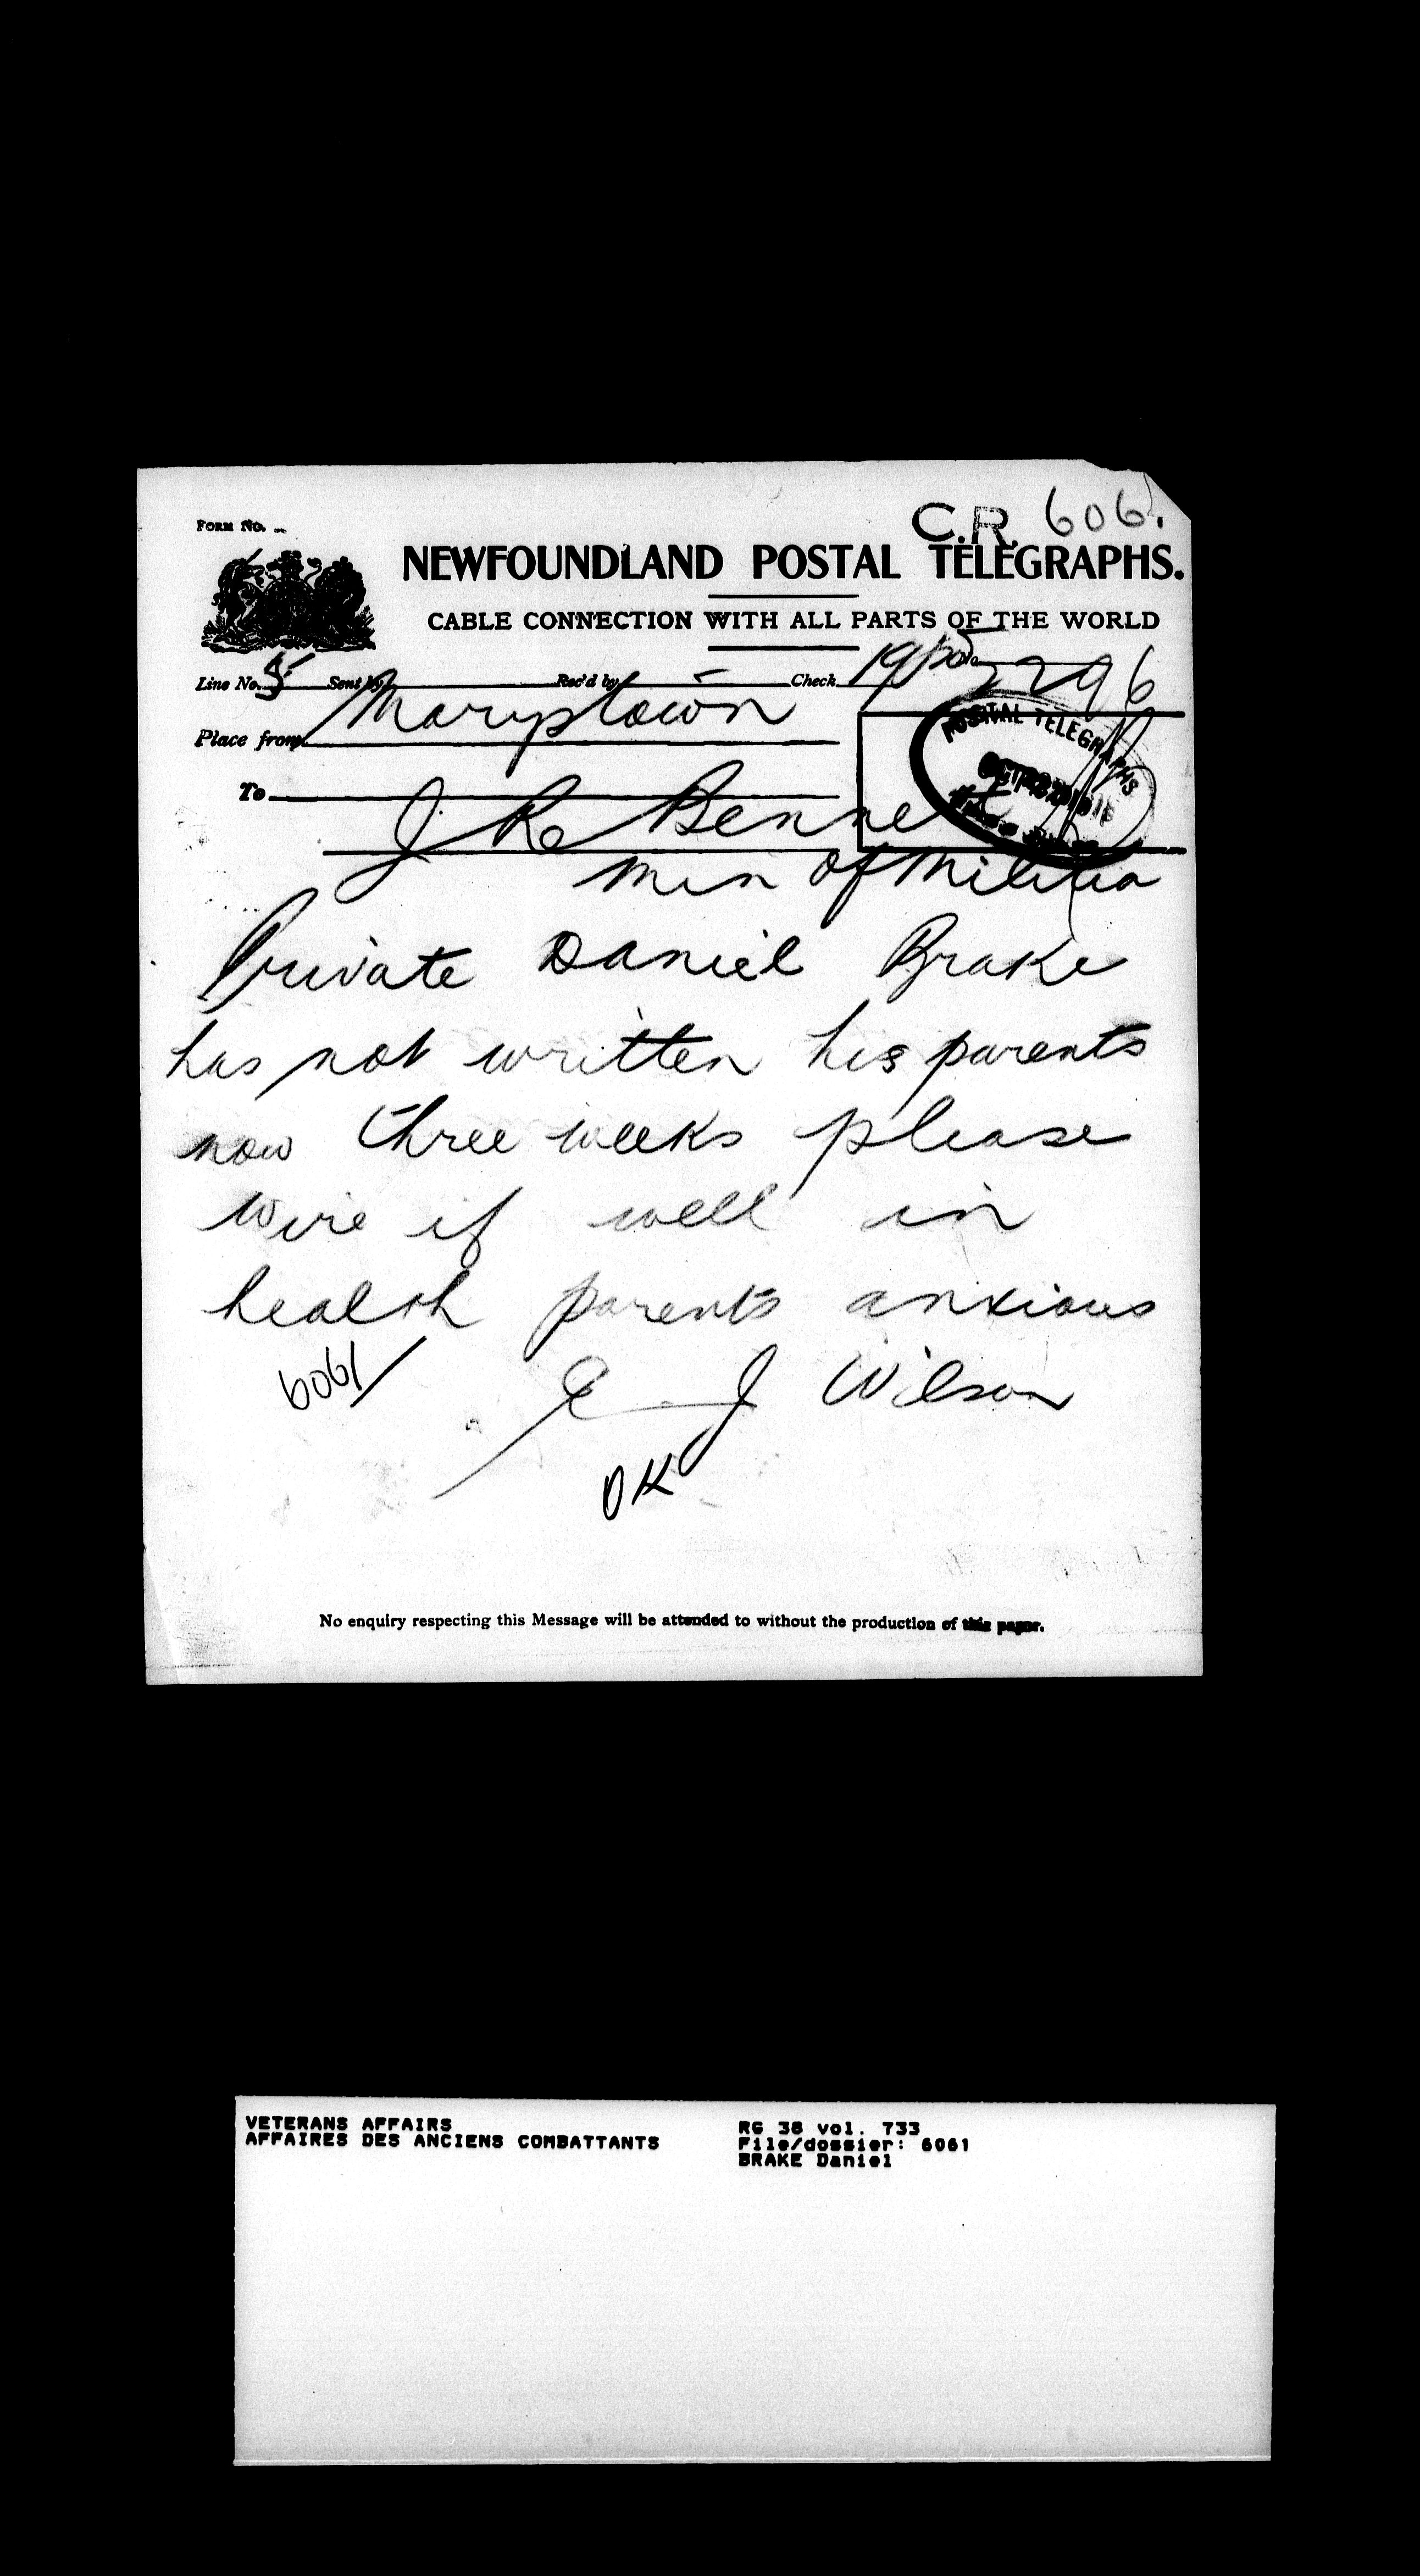 C.R. 606
FORM NO.
NEWFOUNDLAND POSTAL TELEGRAPHS.
CABLE CONNECTION WITH ALL PARTS OF THE WORLD
Line No. 5 Sent by Rec'd by Check 19 296
Place from Marystown
To
POSTAL TELEGRAPHS
J R Benne
Min of Militia
Private Daniel Brake
has not written his parents
now three weeks please
wire if well in
health parents anxious
6061
E J Wilson
OK
No enquiry respecting this Message will be attended to without the production of this paper.
VETERANS AFFAIRS RG 38 vol. 733
AFFAIRES DES ANCIENS COMBATTANTS File/dossier: 6061
BRAKE Daniel